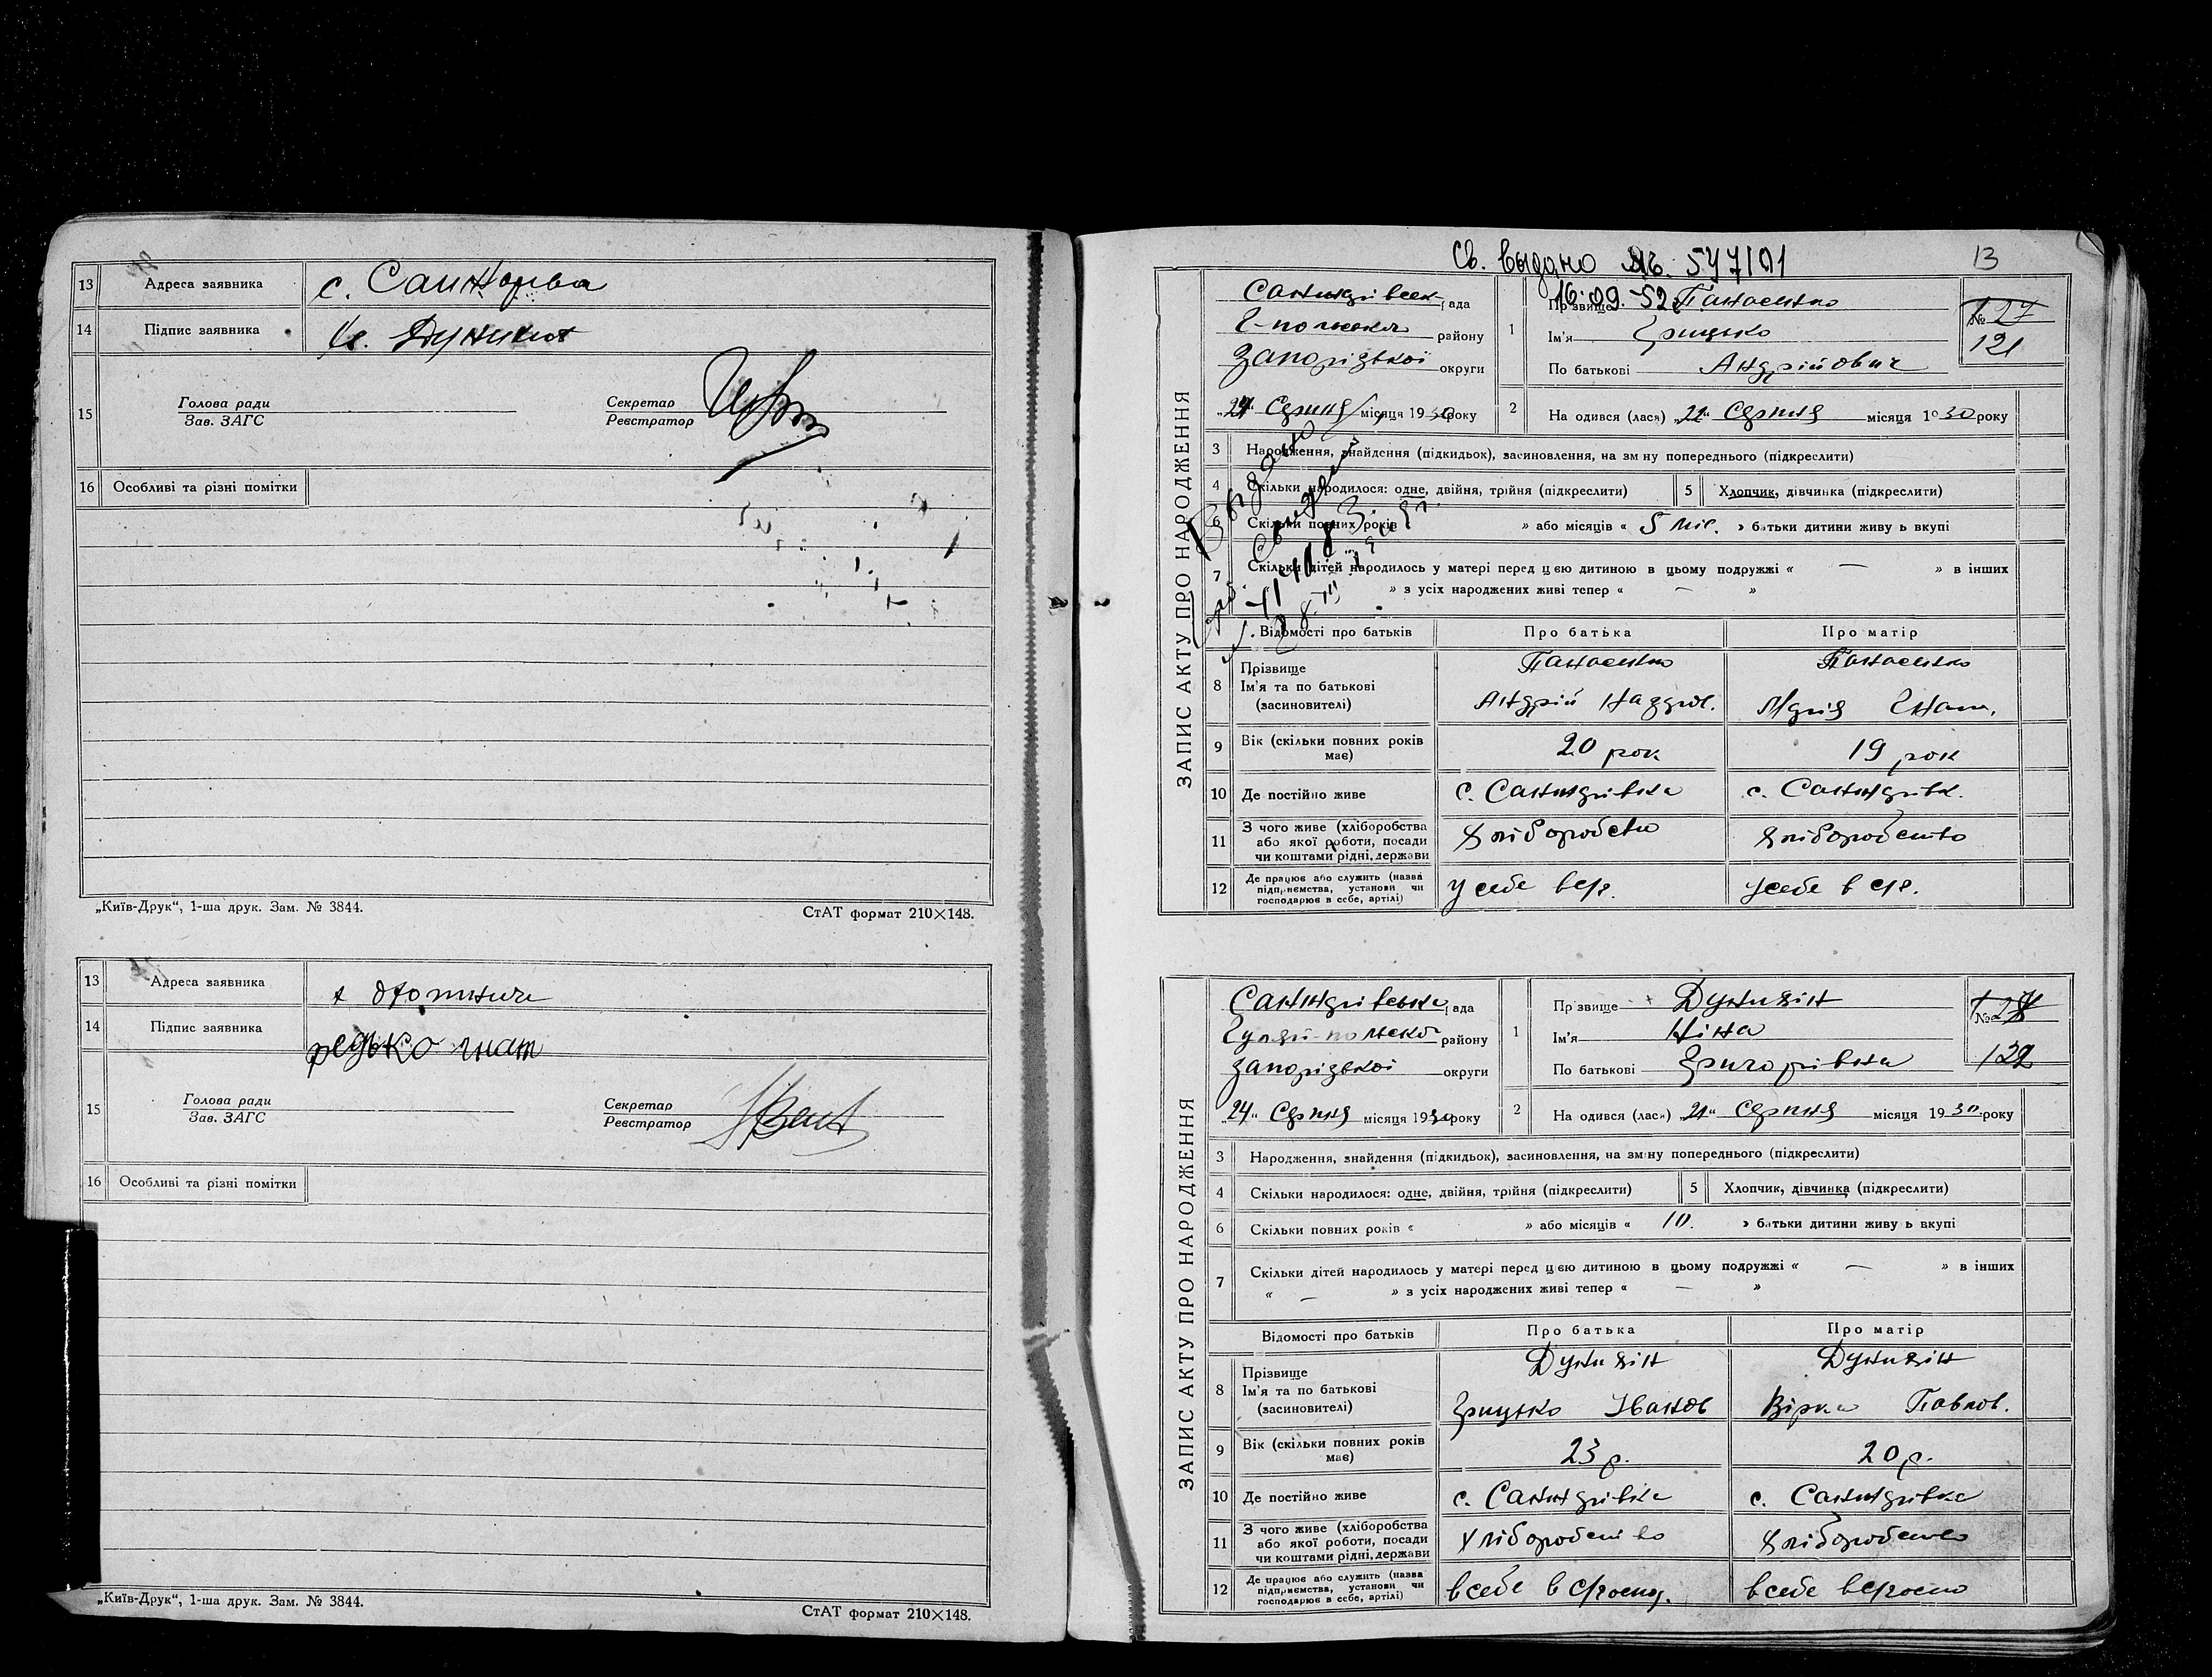 13 Адреса заявника с. Санжарівка
14 Підпис заявника
15 Голова ради Секретар
Зав. ЗАГС Реєстратор
16 Особливі та різні помітки
„Київ-Друк“, 1-ша друк. Зам. № 3844. СтАТ формат 210×148.
13 Адреса заявника
14 Підпис заявника редько гнат
15 Голова ради Секретар
Зав. ЗАГС Реєстратор
16 Особливі та різні помітки
„Київ-Друк“, 1-ша друк. Зам. № 3844. СтАТ формат 210×148.
Св. выдано ЯЬ. 547101
16.09.52
13
ЗАПИС АКТУ ПРО НАРОДЖЕННЯ
рада
району
Запорізької округи
„24“ Серпня місяця 1930 року
1 Прізвище Панасенко
Ім'я Грицько
По батькові Андрійович
№ 27
121
2 На одився (лася) „21“ Серпня місяця 1930 року
3 Народження, знайдення (підкидьок), засиновлення, на зм ну попереднього (підкреслити)
4 Скільки народилося: одне, двійня, трійня (підкреслити) 5 Хлопчик, дівчинка (підкреслити)
6 Скільки повних років » або місяців « 5 міс. » батьки дитини живу ь вкупі
7 Скільки дітей народилось у матері перед цією дитиною в цьому подружжі « — » в інших
» з усіх народжених живі тепер « — »
Выдано
Свидет
Відомості про батьків Про батька Про матір
8 Прізвище Панасенко Панасенко
Ім'я та по батькові Андрій Марія
(засиновителі)
9 Вік (скільки повних років має) 20 рок 19 рок
10 Де постійно живе с. с.
11 З чого живе (хліборобства або якої роботи, посади чи коштами рідні, держави Хліборобство Хліборобство
12 Де працює або служить (назва підприємства, установи чи господарює в себе, артілі) у себе в с/г. у себе в с/г.
ЗАПИС АКТУ ПРО НАРОДЖЕННЯ
рада
Гуляй-польськ району
Запорізької округи
„24“ Серпня місяця 1930 року
1 Пр звище
Ім'я Ніна
По батькові Григорівна
№ 28
122
2 На одився (лася) „21“ Серпня місяця 1930 року
3 Народження, знайдення (підкидьок), засиновлення, на зміну попереднього (підкреслити)
4 Скільки народилося: одне, двійня, трійня (підкреслити) 5 Хлопчик, дівчинка (підкреслити)
6 Скільки повних років « » або місяців « 10. » батьки дитини живу ь вкупі
7 Скільки дітей народилось у матері перед цією дитиною в цьому подружжі « — » в інших
« — » з усіх народжених живі тепер « — »
Відомості про батьків Про батька Про матір
8 Прізвище
Ім'я та по батькові Грицько Іванов Вірка Павлов.
(засиновителі)
9 Вік (скільки повних років має) 23 р. 20 р.
10 Де постійно живе с. с.
11 З чого живе (хліборобства або якої роботи, посади чи коштами рідні, держави Хліборобство Хліборобство
12 Де працює або служить (назва підприємства, установи чи господарює в себе, артілі) в себе в в себе в